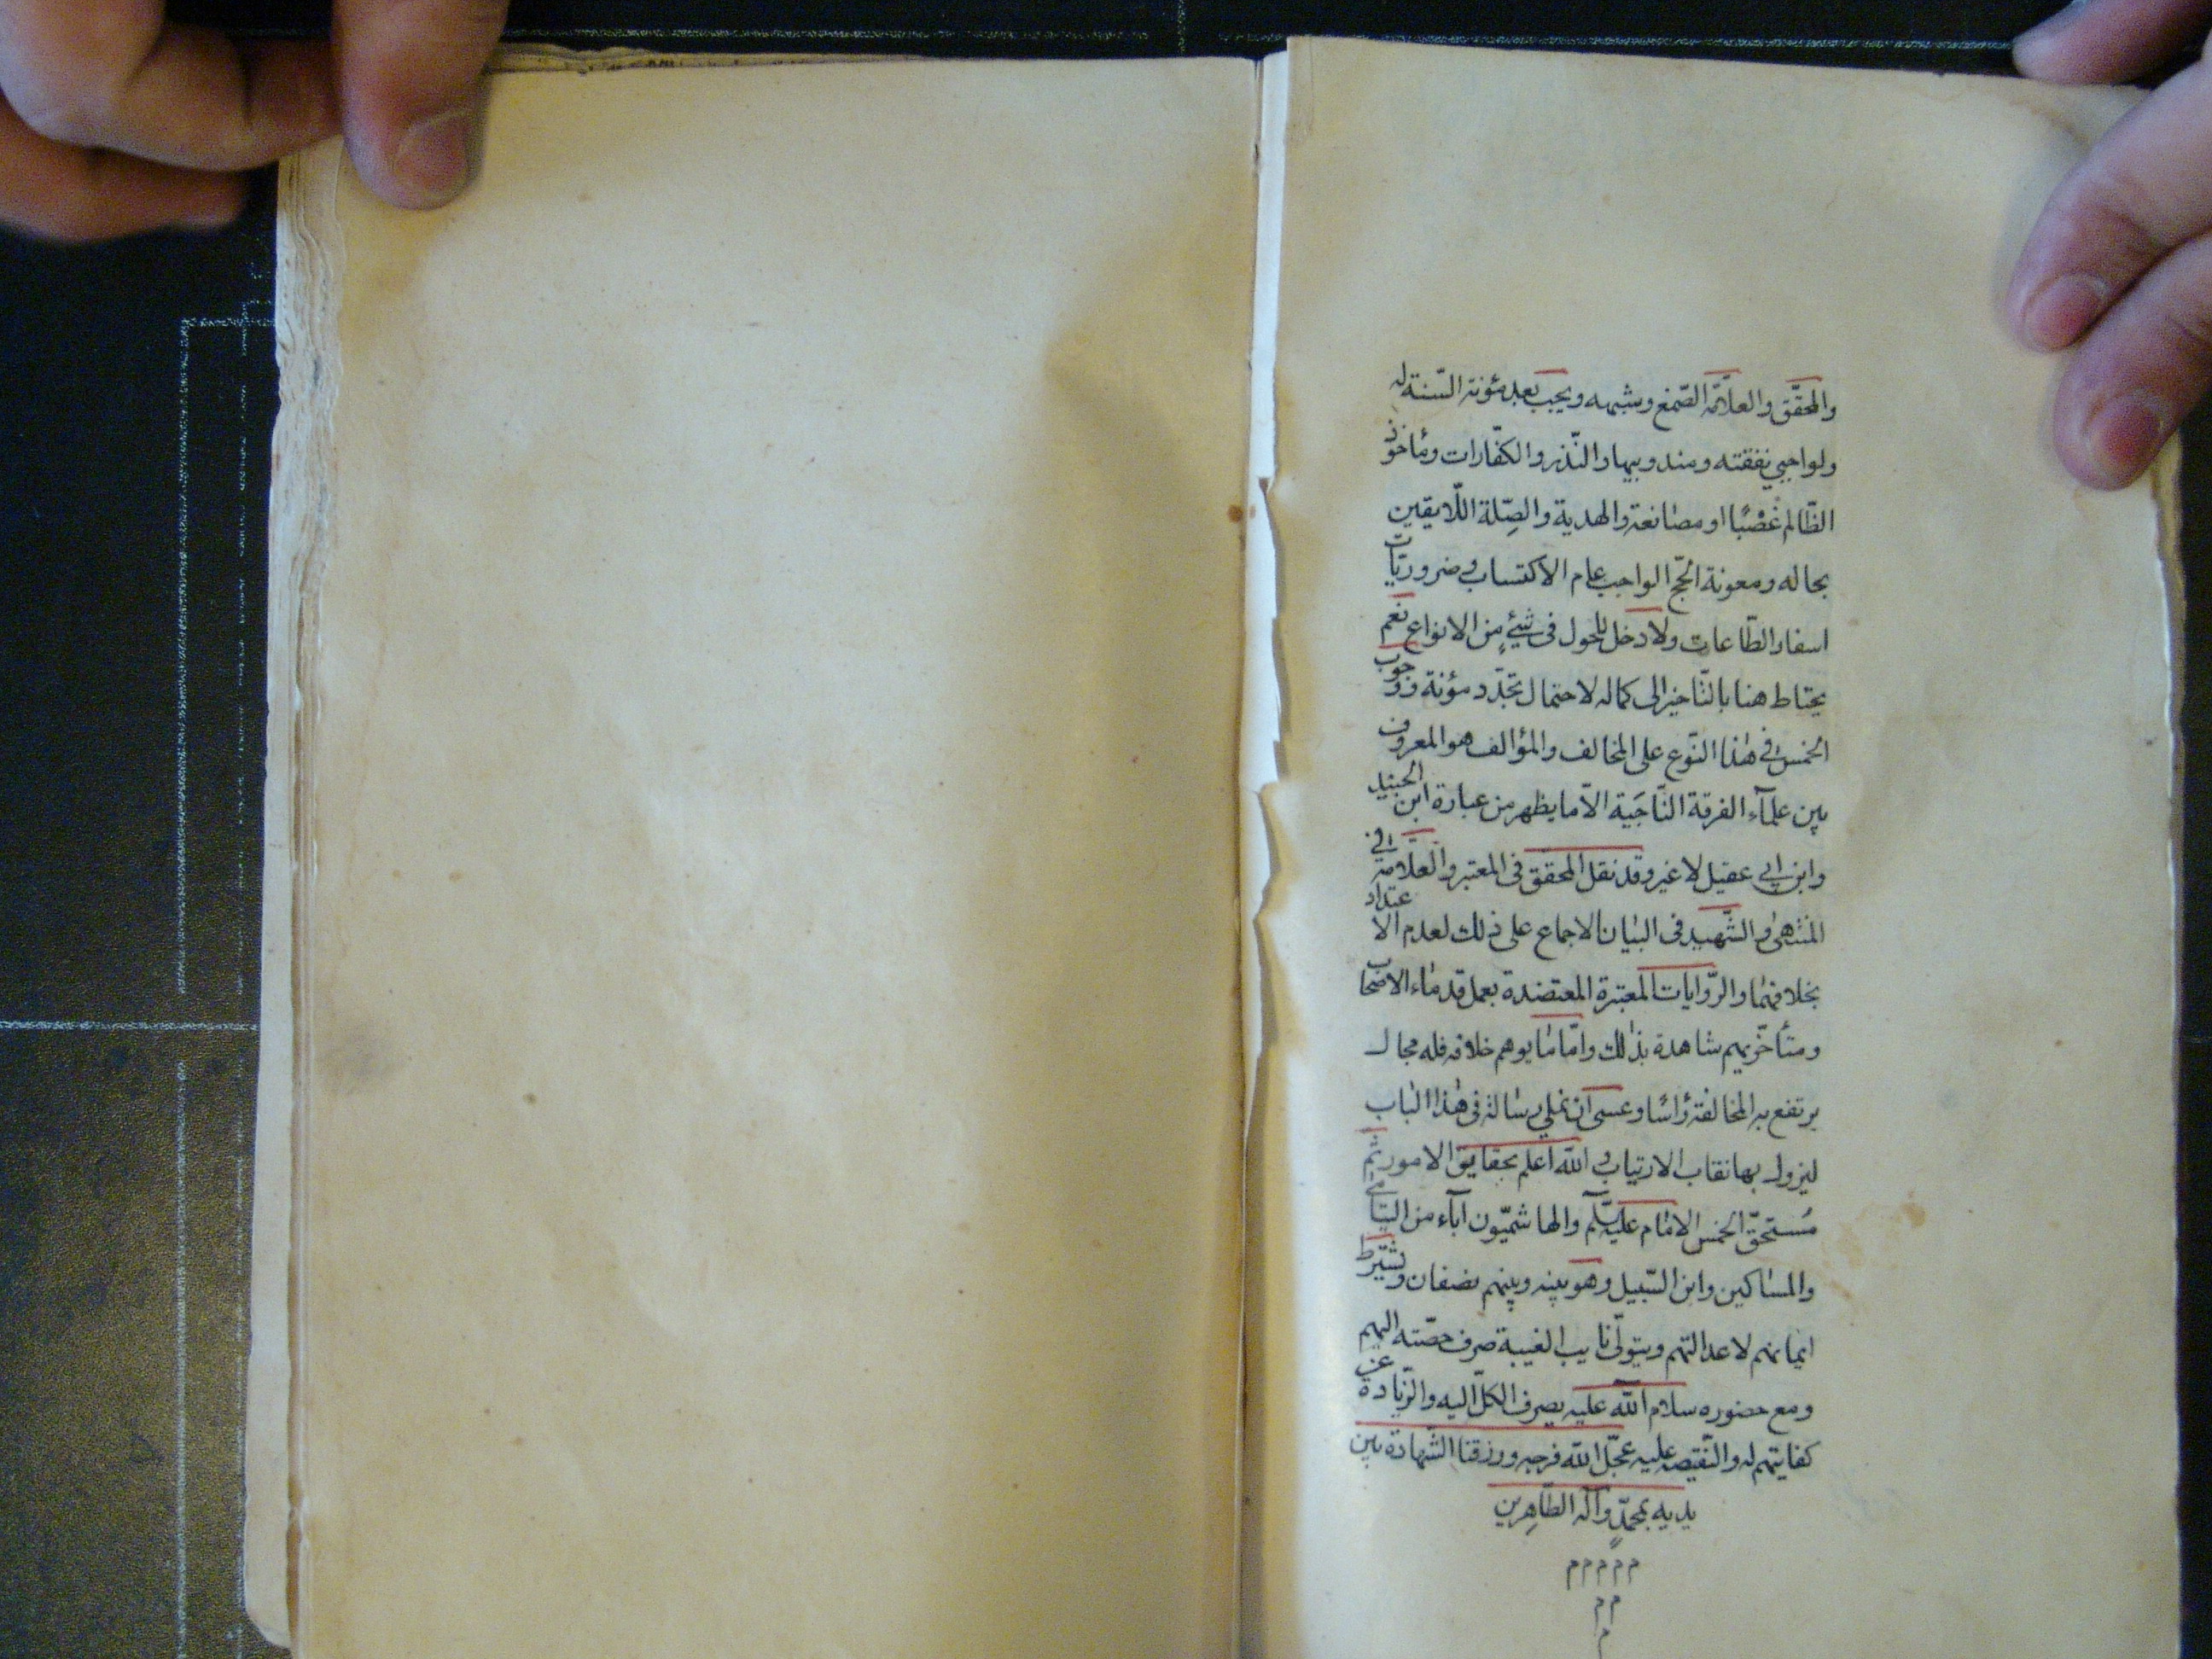 والمحقّق والعلّامة الصّمغ وشبهه ويجب بعد مؤنة السّنة له
ولواجبي نفقته ومندوبيها والنّذر والكفّارات ومأخوذ
الظّالم غصْبًا او مصانعة والهدية والصِّلة اللّايقين
بحاله ومعونة الحجّ الواجب عام الاكتساب وضروريّات
اسفار الطّاعات ولا دخل للحول فى شئٍ من الانواع نعم
يحتاط هنا بالتّاخير الى كماله لاحتمال تجدّد مؤنة ووجوب
الخمس في هذا النّوع على المخالف والمؤالف هو المعروف
بين علمآء الفرقة النّاجَية الّا ما يظهر من عبارة ابن الجنيد
وابن ابي عقيل لا غير وقد نقل المحقق فى المعتبر والعلّامة في
المنتهى والشّهيد فى البيان الاجماع على ذلك لعدم الاعتداد
بخلافهما والرّوايات المعتبرة المعتضدة بعمل قدماء الاصحاب
ومتأخّريهم شاهدة بذلك وامّا ما يوهم خلافه فله مجال
يرتفع به المخالفة رأسًا وعسى ان نملي رسالة فى هذا الباب
ليزول بها نقاب الارتياب والله اعلم بحقايق الامور ثم
مُستحقّ الخمس الامام عليه السّلم والهاشميّون آبآء من اليتامى
والمساكين وابن السّبيل وهو بينه وبينهم نصفان ويشترط
ايمانهم لا عدالتهم ويتولّى نايب الغيبة صرف حصّته اليهم
ومع حضوره سلام الله عليه يصرف الكلّ اليه والزّيادة عن
كفايتهم له والنّقيصة عليه عجّل الله فرجه ورزقنا الشّهادة بين
يديه بمحمّدٍ وآله الطّاهِرين
م م م م م
م م
م